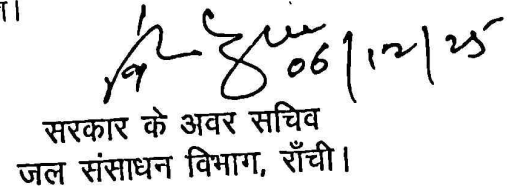 06/12/25
सरकार के अवर सचिव
जल संसाधन विभाग, राँची।